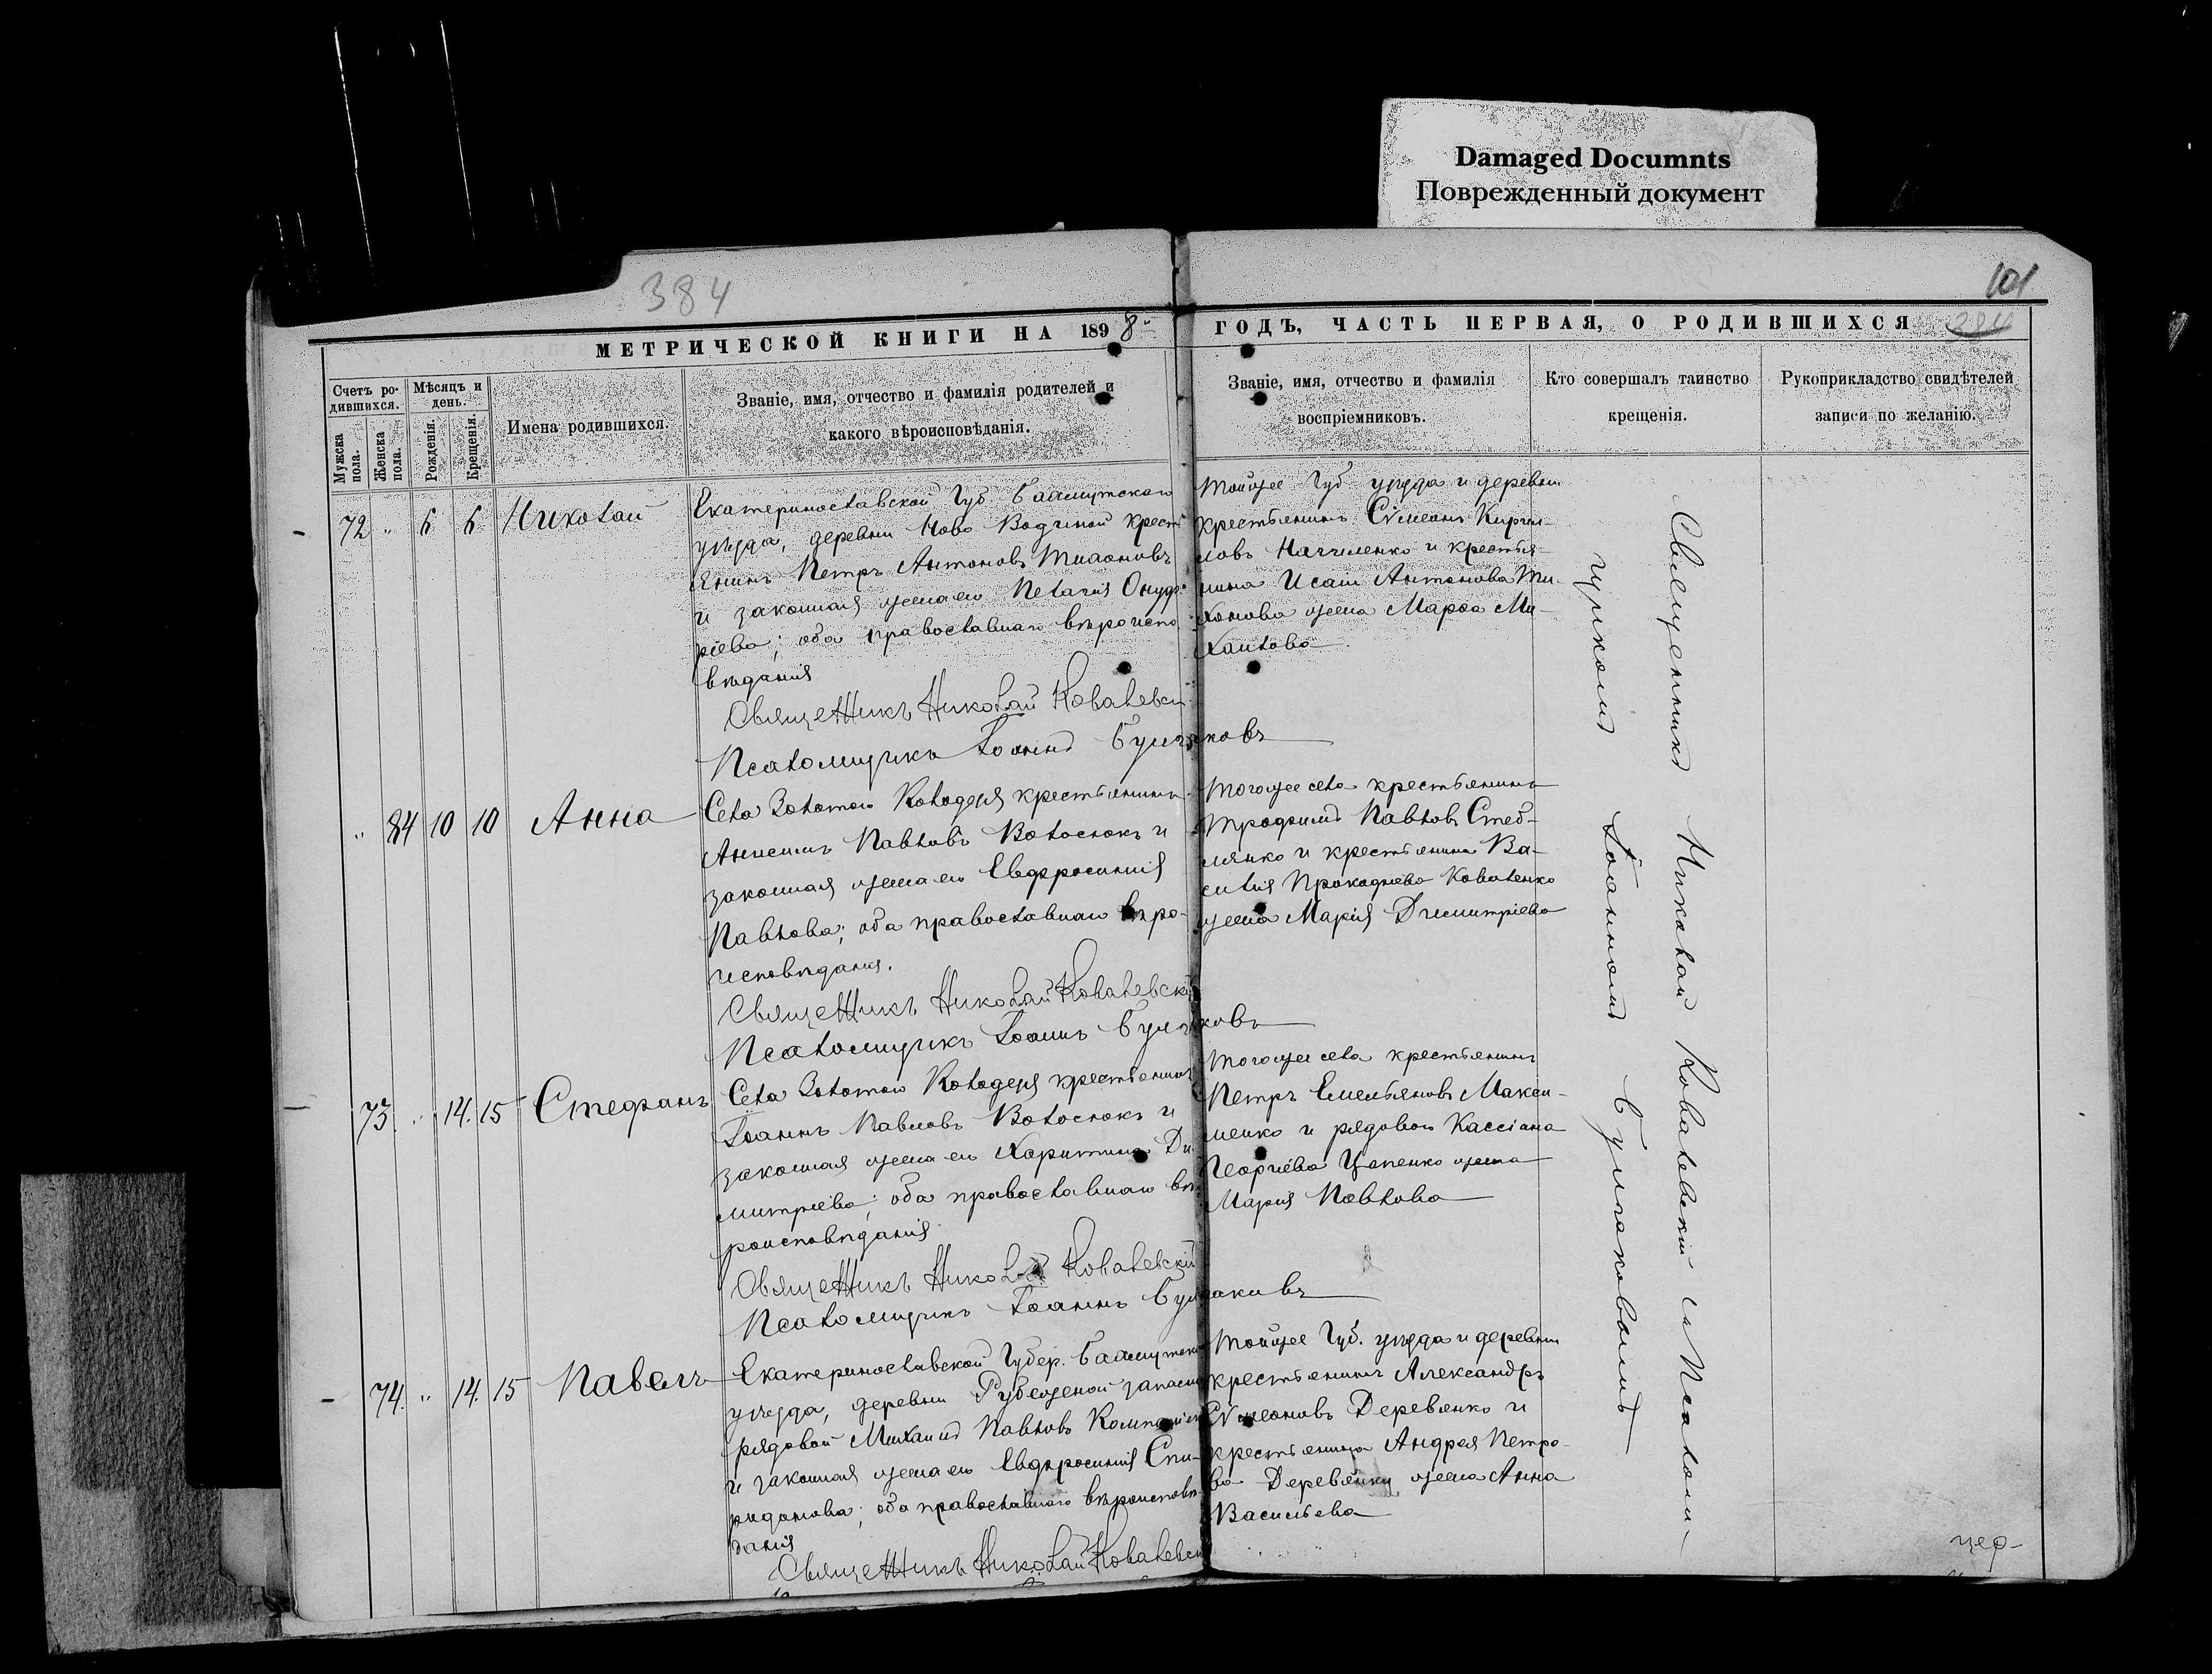 Damaged Documnts
Поврежденный документ
384
101
МЕТРИЧЕСКОЙ КНИГИ НА 1898й ГОДЪ, ЧАСТЬ ПЕРВАЯ, О РОДИВШИХСЯ 384
Счетъ ро-
дившихся.
Мужска пола.
Женска пола.
Мѣсяцъ и
день.
Рожденія.
Крещенія.
Имена родившихся.
Званіе, имя, отчество и фамилія родителей и
какого вѣроисповѣданія.
Званіе, имя, отчество и фамилія
воспріемниковъ.
Кто совершалъ таинство
крещенія.
Рукоприкладство свидѣтелей
записи по желанію.
72 " 6 6 Николай
Екатеринославской Губ Бахмутскаго
уѣзда, деревни Ново Водяной крест
янинъ Петръ Антоновъ Тихоновъ
и законная жена его Пелагія Онуф-
ріева; оба православнаго вѣроиспо
вѣданія
Священникъ Николай Ковалевскі
Псаломщикъ Іоаннъ Булгаковъ
Тойже Губ уѣзда и деревни
крестьянинъ Сѵмеонъ Кирил-
ловъ и крестья-
нина Исаіи Антонова Ти-
хонова жена Марѳа Ми-
хайлова
" 84 10 10 Анна
Села Золотого Колодезя крестьянинъ
Анисимъ Павловъ Волоснокъ и
законная жена его Евфросинія
Павлова; оба православнаго вѣро-
исповѣданія.
Священникъ Николай Ковалевскі
Псаломщикъ Іоаннъ Булгаковъ
Тогоже села крестьянинъ
Трофимъ Павловъ Стеб-
лянко и крестьянина Ва-
силія Прокофіева Коваленко
жена Марія Димитріева
73. " 14. 15 Стефанъ
Села Золотого Колодезя крестьянинъ
Іоаннъ Павловъ Волоснокъ и
законная жена его Харитина Ди
митріева; оба православнаго вѣ
роисповѣданія
Священникъ Николай Ковалевскій
Псаломщикъ Іоаннъ Булгаковъ
Тогоже села крестьянинъ
Петръ Емельяновъ Макси-
менко и рядового Кассіана
Георгіева Цапенко жена
Марія Павлова
74. " 14. 15 Павелъ
Екатеринославской Губер. Бахмутска
уѣзда, деревни Рубежной запасн
рядовой Михаилъ Павловъ
и законная жена его Евфросинія Спи-
ридонова; оба православнаго вѣроисповѣ
данія
Священникъ Николай Ковалевск
Тойже Губ. уѣзда и деревни
крестьянинъ Александръ
Сѵмеоновъ Деревянко и
крестьянина Андрея Петро-
ва Деревянки жена Анна
Васильева
Священникъ Николай Ковалевскій съ Псалом-
щикомъ Іоанномъ Булгаковымъ